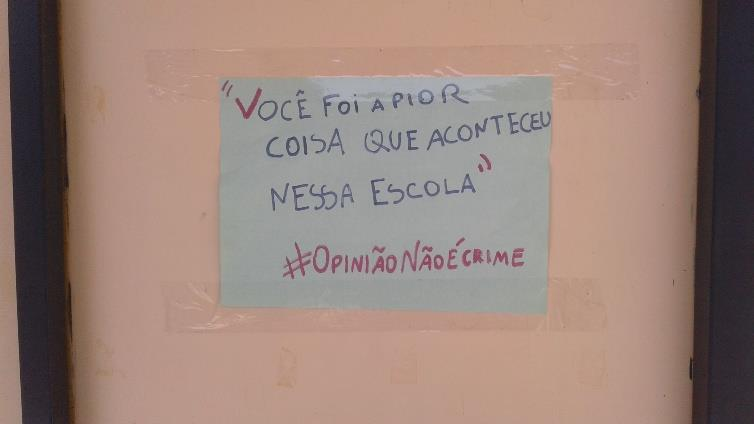 "VOCÊ FOI A PIOR
COISA QUE ACONTECEU
NESSA ESCOLA"
#OPINIÃONÃOÉCRIME